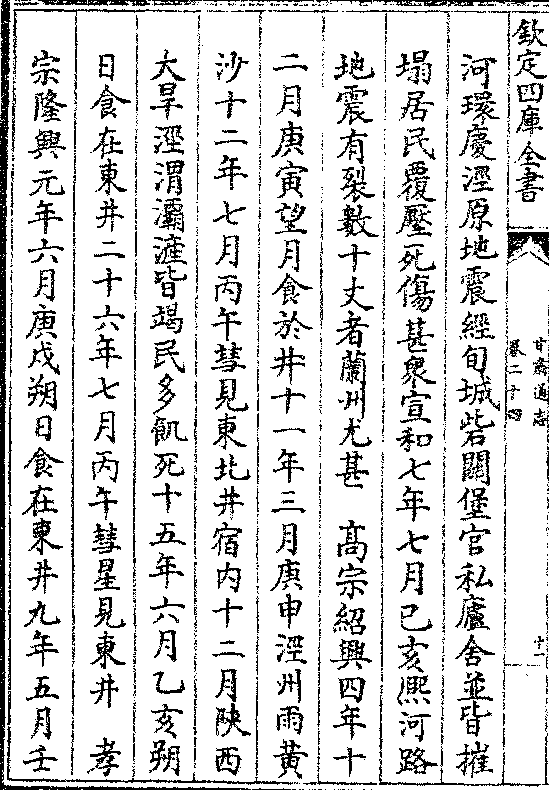 欽定四庫全書
甘肅通志
卷二十四
十一
河環慶涇原地震經旬城砦關堡官私廬舍並皆摧
塌居民覆壓死傷甚衆宣和七年七月己亥熈河路
地震有裂數十丈者蘭州尤甚　高宗紹興四年十
二月庚寅望月食於井十一年三月庚申涇州雨黄
沙十二年七月丙午彗見東北井宿内十二月陝西
大旱涇渭灞滻皆竭民多飢死十五年六月乙亥朔
日食在東井二十六年七月丙午彗星見東井　孝
宗隆興元年六月庚戌朔日食在東井九年五月壬